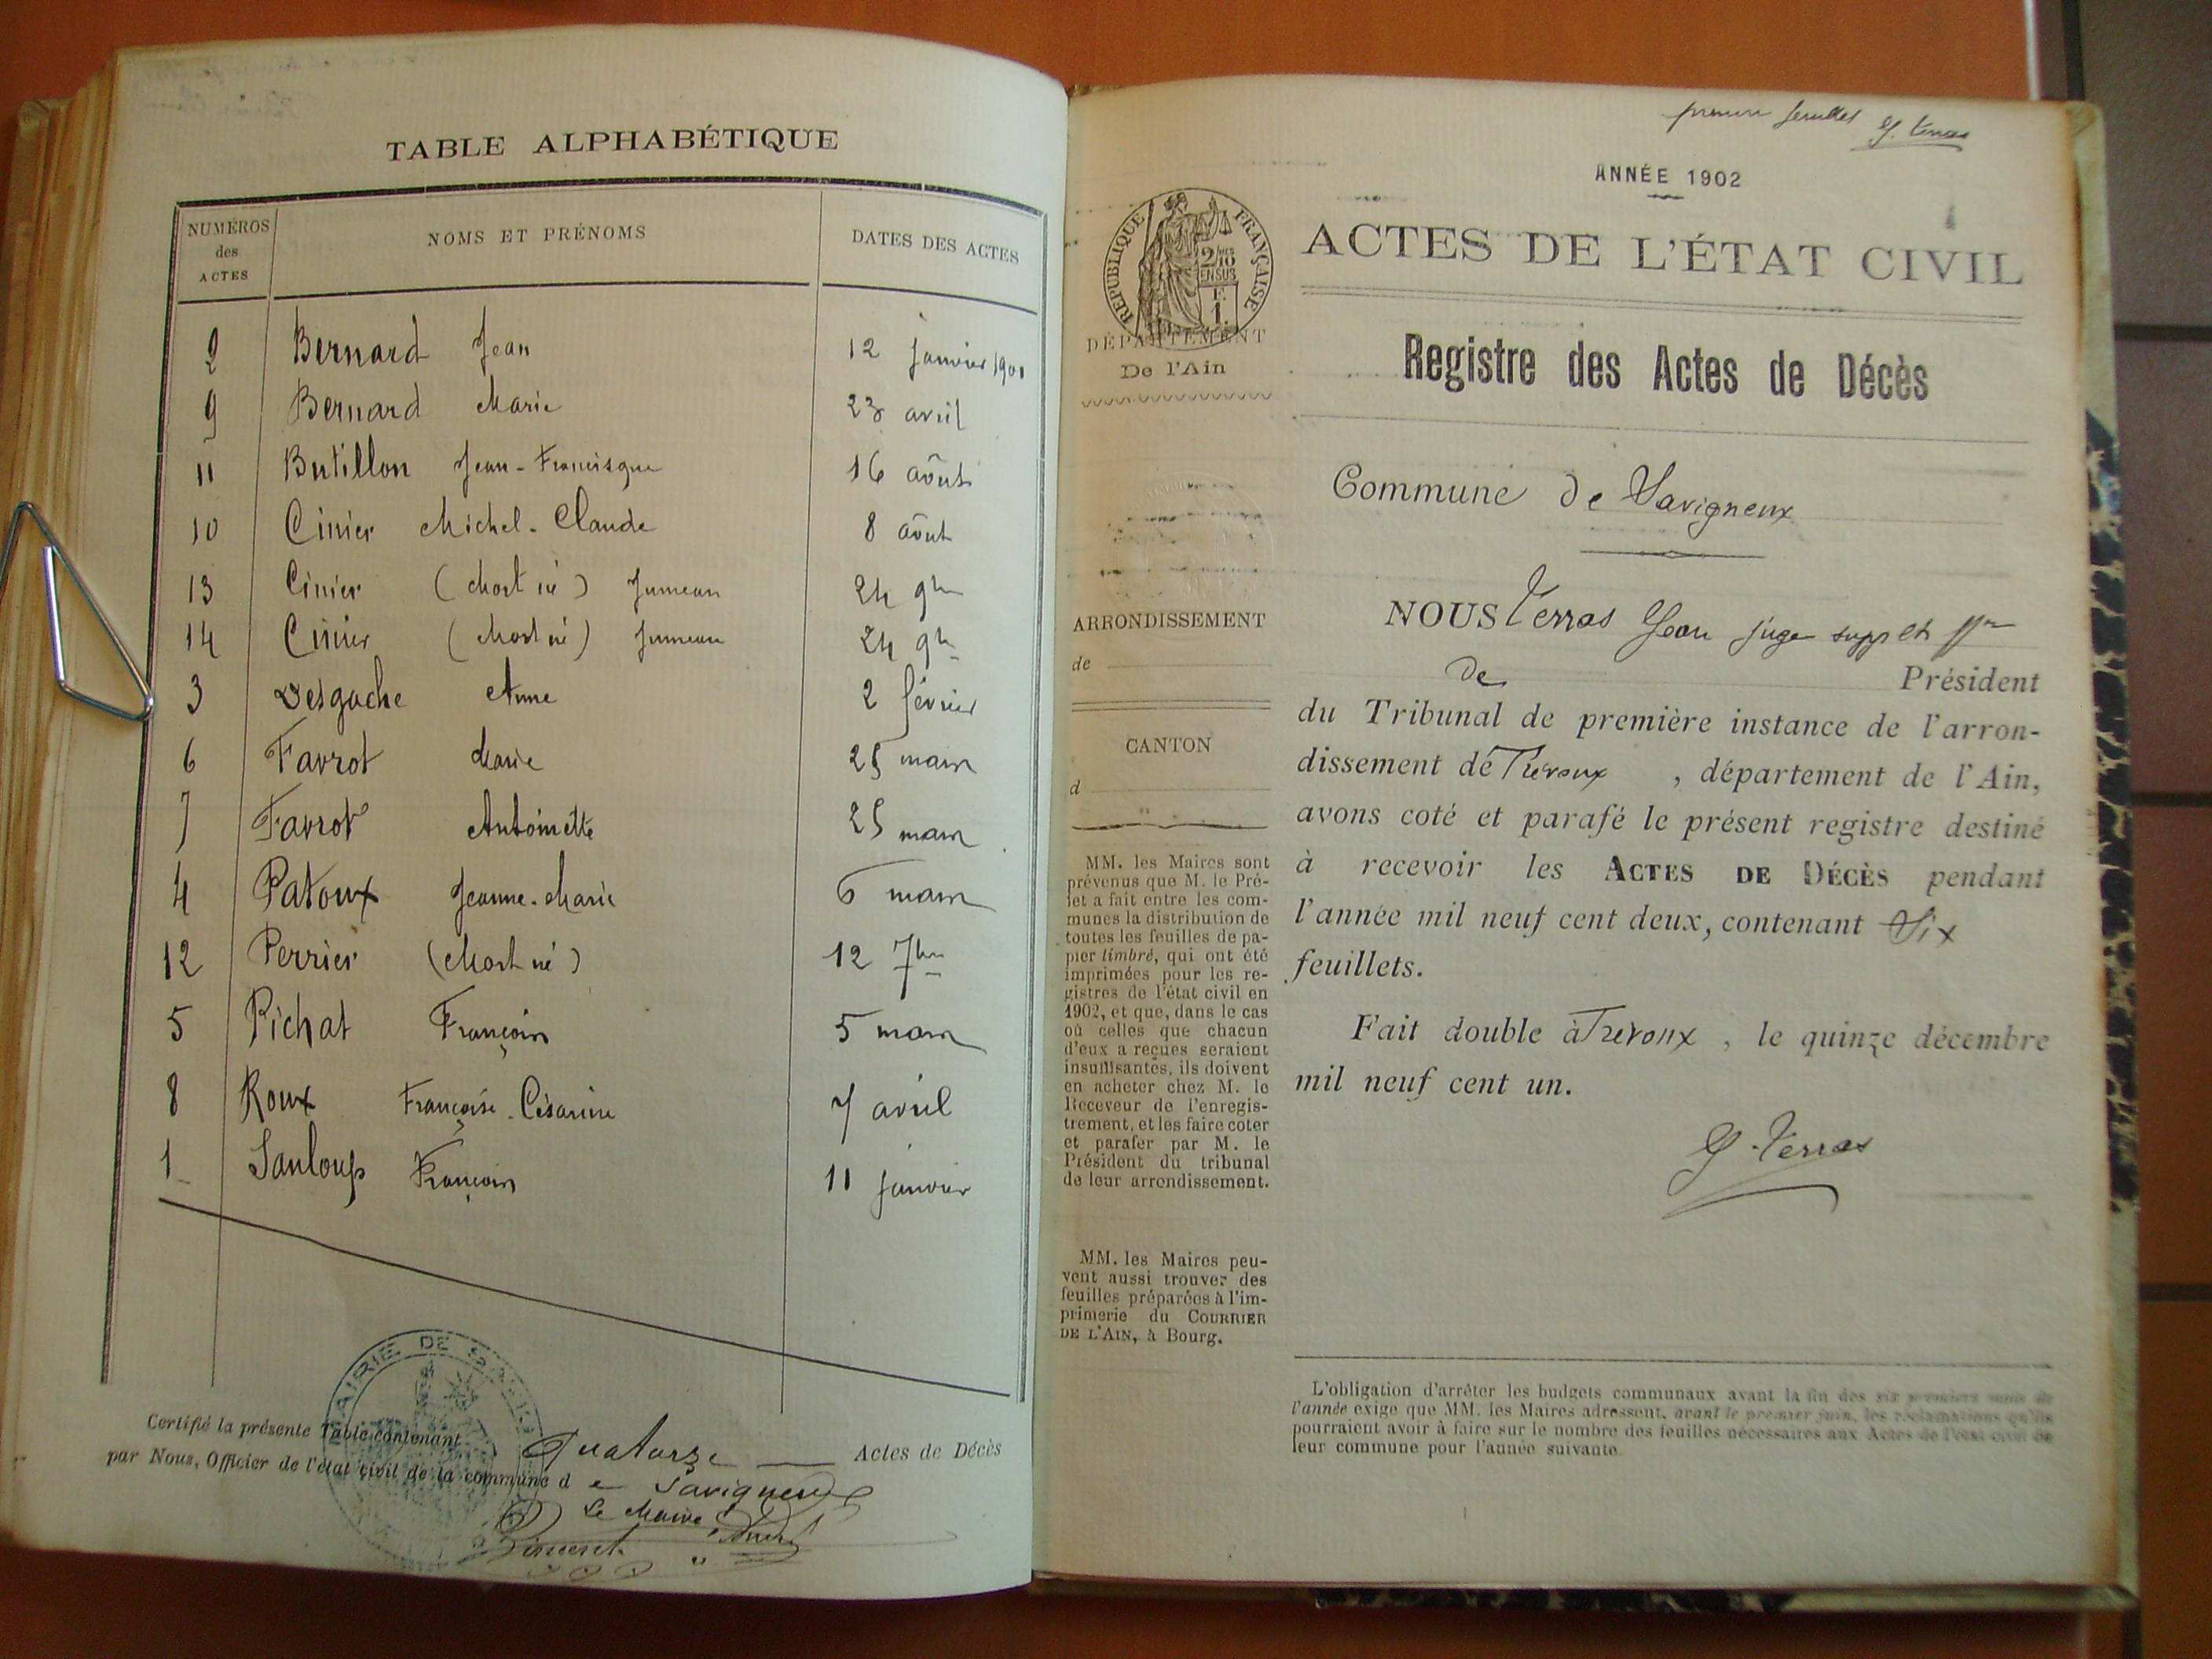 TABLE ALPHABÉTIQUE
NUMÉROS des ACTES NOMS ET PRÉNOMS DATES DES ACTES
2 Bernard Jean 12 janvier 1901
9 Bernard Marie 23 avril
11 Butillon Jean-Francisque 16 août
10 Cinier Michel-Claude 8 août
13 Cinier (Mort né) Jumeau 24 9bre
14 Cinier (Mort né) Jumeau 24 9bre
3 Desgache Anne 2 février
6 Favrot Marie 25 mars
7 Favrot Antoinette 25 mars
4 Patoux Jeanne-Marie 6 mars
12 Perrier (Mort né) 12 7bre
5 Pichat François 5 mars
8 Roux Françoise-Césarine 7 avril
1 Sauloup François 11 janvier
MAIRIE DE
Certifié la présente Table contenant Quatorze Actes de Décès
par Nous, Officier de l'état civil de la commune de Savigneux
Le Maire
G. Terras
ANNÉE 1902
ACTES DE L'ÉTAT CIVIL
RÉPUBLIQUE FRANÇAISE
2/10mes EN SUS
F. 1.
DÉPARTEMENT
De l'Ain
Registre des Actes de Décès
Commune de Savigneux
ARRONDISSEMENT
de
CANTON
d
NOUS Terras Jean juge suppt
de Président
du Tribunal de première instance de l'arron-
dissement de Trévoux, département de l'Ain,
avons coté et parafé le présent registre destiné
à recevoir les ACTES DE DÉCÈS pendant
l'année mil neuf cent deux, contenant Six
feuillets.
Fait double à Trévoux, le quinze décembre
mil neuf cent un.
G. Terras
MM. les Maires sont
prévenus que M. le Pré-
fet a fait entre les com-
munes la distribution de
toutes les feuilles de pa-
pier timbré, qui ont été
imprimées pour les re-
gistres de l'état civil en
1902, et que, dans le cas
où celles que chacun
d'eux a reçues seraient
insuffisantes, ils doivent
en acheter chez M. le
Receveur de l'enregis-
trement, et les faire coter
et parafer par M. le
Président du tribunal
de leur arrondissement.
MM. les Maires peu-
vent aussi trouver des
feuilles préparées à l'im-
primerie du COURRIER
DE L'AIN, à Bourg.
L'obligation d'arrêter les budgets communaux avant la fin des six premiers mois de
l'année exige que MM. les Maires adressent, avant le premier juin, les réclamations qu'ils
pourraient avoir à faire sur le nombre des feuilles nécessaires aux Actes de l'état civil de
leur commune pour l'année suivante.